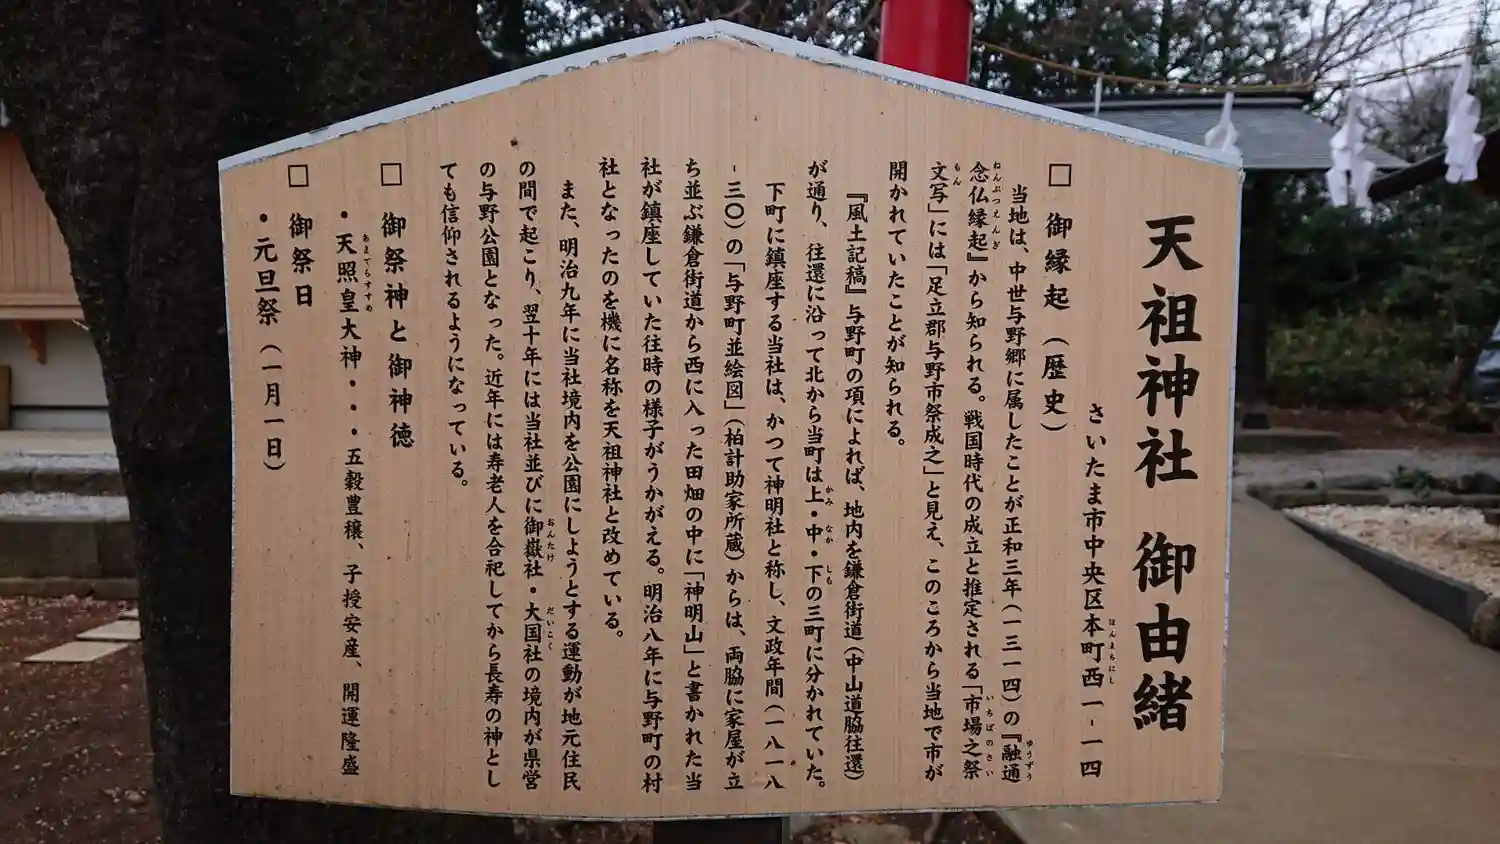 天祖神社　御由緒
さいたま市中央区本町西一-一一四
□　御縁起（歴史）
当地は、中世与野郷に属したことが正和三年（一三一四）の『融通
念仏縁起』から知られる。戦国時代の成立と推定される「市場之祭
文写」には「足立郡与野市祭成之」と見え、このころから当地で市が
開かれていたことが知られる。
『風土記稿』与野町の項によれば、地内を鎌倉街道（中山道脇往還）
が通り、往還に沿って北から当町は上・中・下の三町に分かれていた。
下町に鎮座する当社は、かつて神明社と称し、文政年間（一八一八
-三〇）の「与野町並絵図」（柏計助家所蔵）からは、両脇に家屋が立
ち並ぶ鎌倉街道から西に入った田畑の中に「神明山」と書かれた当
社が鎮座していた往時の様子がうかがえる。明治八年に与野町の村
社となったのを機に名称を天祖神社と改めている。
また、明治九年に当社境内を公園にしようとする運動が地元住民
の間で起こり、翌十年には当社並びに御嶽社・大国社の境内が県営
の与野公園となった。近年には寿老人を合祀してから長寿の神とし
ても信仰されるようになっている。
□　御祭神と御神徳
・天照皇大神・・・五穀豊穣、子授安産、開運隆盛
□　御祭日
・元旦祭（一月一日）